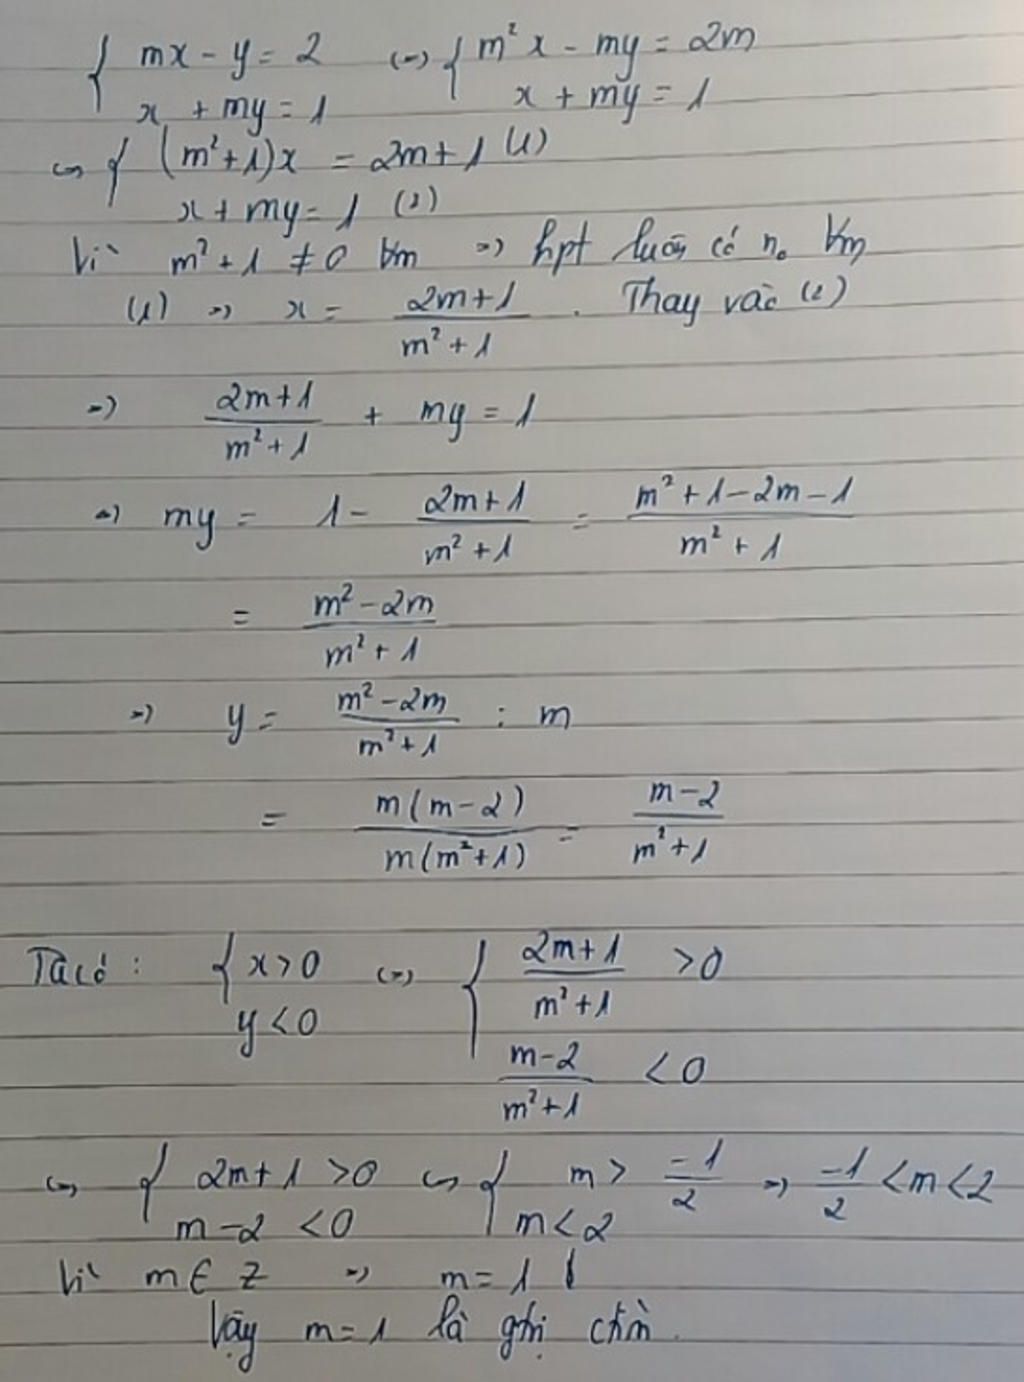 { mx - y = 2 <=> { m² x - my = 2m
x + my = 1 x + my = 1
<=> { (m²+1)x = 2m+1 (1)
x + my = 1 (2)
Vì m² + 1 ≠ 0 ∀m => hpt luôn có n₀ ∀m
(1) => x = (2m+1)/(m²+1) . Thay vào (2)
=> (2m+1)/(m²+1) + my = 1
=> my = 1 - (2m+1)/(m²+1) = (m²+1-2m-1)/(m²+1)
= (m²-2m)/(m²+1)
=> y = (m²-2m)/(m²+1) : m
= m(m-2)/m(m²+1) = (m-2)/(m²+1)
Ta có : { x > 0 <=> { (2m+1)/(m²+1) > 0
y < 0 (m-2)/(m²+1) < 0
<=> { 2m+1 > 0 <=> { m > -1/2 => -1/2 < m < 2
m-2 < 0 m < 2
Vì m ∈ Z => m = 1
Vậy m = 1 là